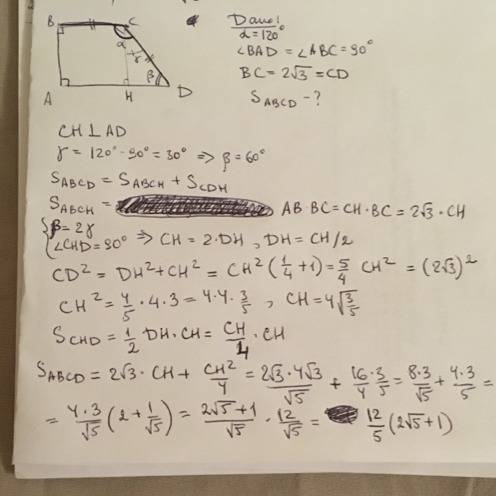 B C
α γ
β
A H D
Дано:
α = 120°
∠BAD = ∠ABC = 90°
BC = 2√3 = CD
S_ABCD - ?
CH ⊥ AD
γ = 120° - 90° = 30° => β = 60°
S_ABCD = S_ABCH + S_CDH
S_ABCH = AB·BC = CH·BC = 2√3·CH
{β = 2γ
∠CHD = 90° => CH = 2·DH, DH = CH/2
CD² = DH² + CH² = CH²(1/4 + 1) = 5/4 CH² = (2√3)²
CH² = 4/5 · 4·3 = 4·4·3/5, CH = 4√(3/5)
S_CHD = 1/2 DH·CH = CH/4 · CH
S_ABCD = 2√3·CH + CH²/4 = 2√3·4√3/√5 + 16/4·3/5 = 8·3/√5 + 4·3/5 =
= 4·3/√5 (2 + 1/√5) = (2√5+1)/√5 · 12/√5 = 12/5 (2√5+1)